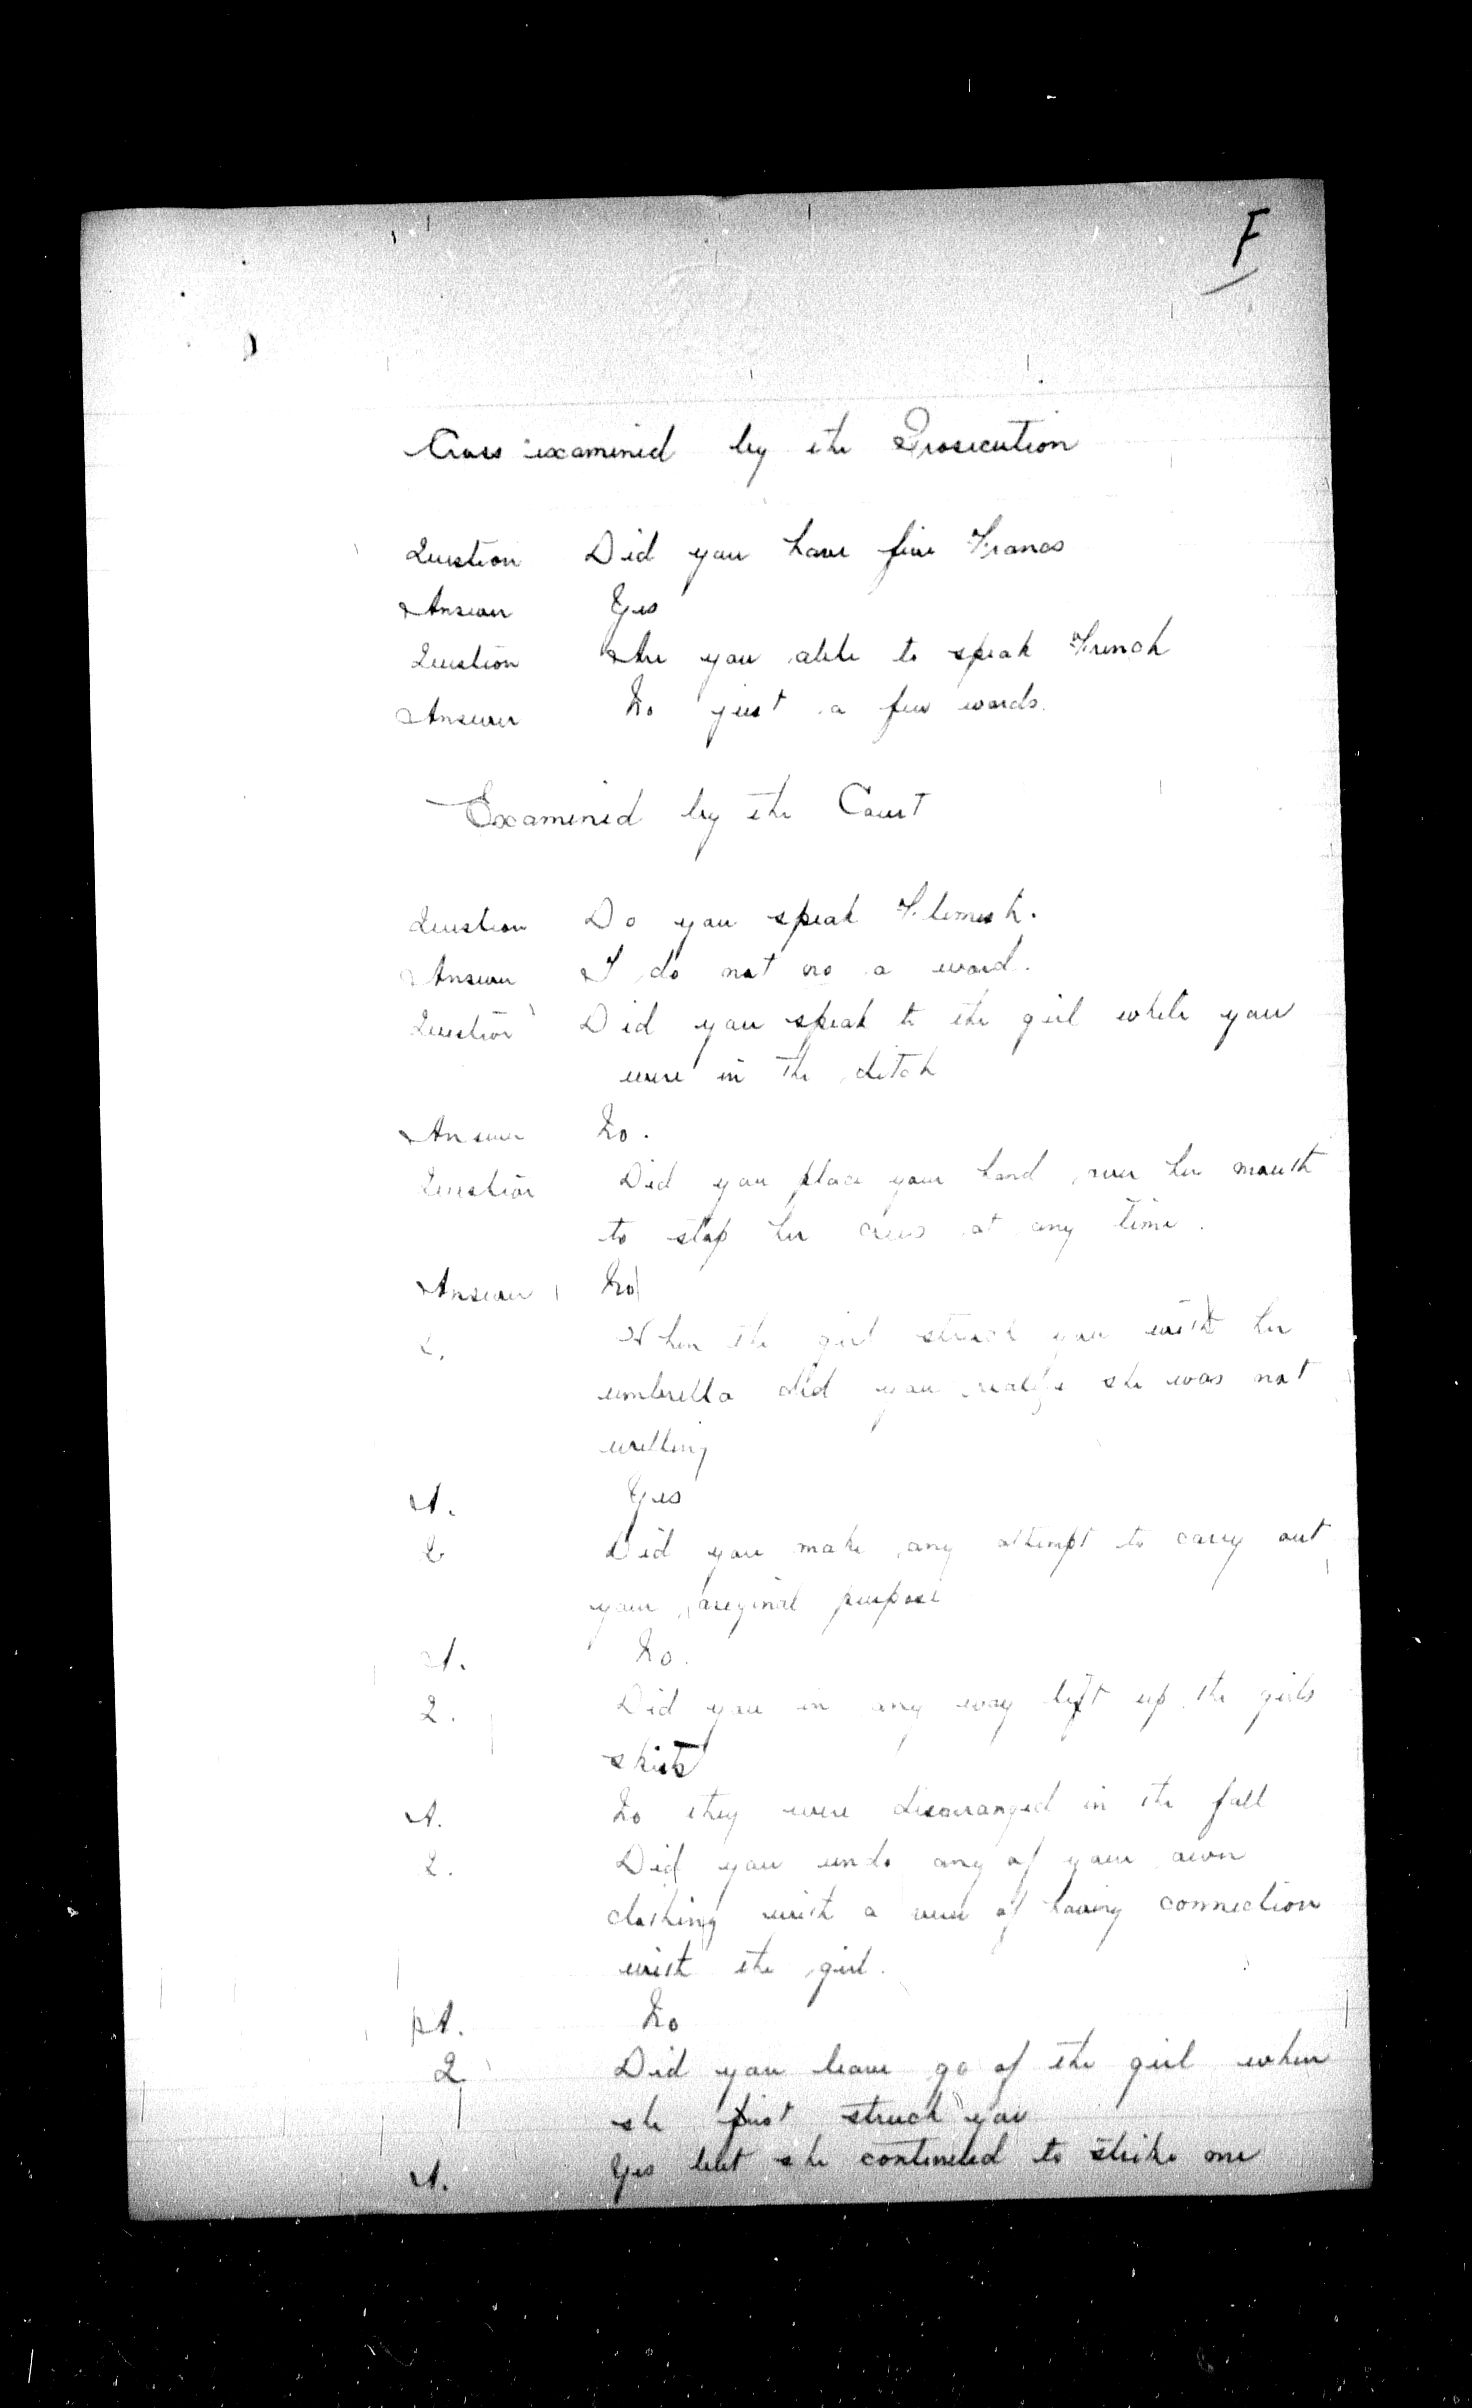 F
Cross examined by the Prosecution
Question Did you have five Francs
Answer Yes
Question Are you able to speak French
Answer No just a few words.
Examined by the Court
Question Do you speak Flemish.
Answer I do not no a word.
Question Did you speak to the girl while you
were in the ditch
Answer No.
Question Did you place your hand over her mouth
to stop her cries at any time.
Answer No
Q. When the girl struck you with her
umbrella did you realize she was not
willing
A. Yes
Q Did you make any attempt to carry out
your original purpose
A. No.
Q. Did you in any way lift up the girls
skirts
A. No they were disarranged in the fall
Q. Did you undo any of your own
clothing with a view of having connection
with the girl.
A. No
Q. Did you leave go of the girl when
she first struck you
A. Yes but she continued to strike me